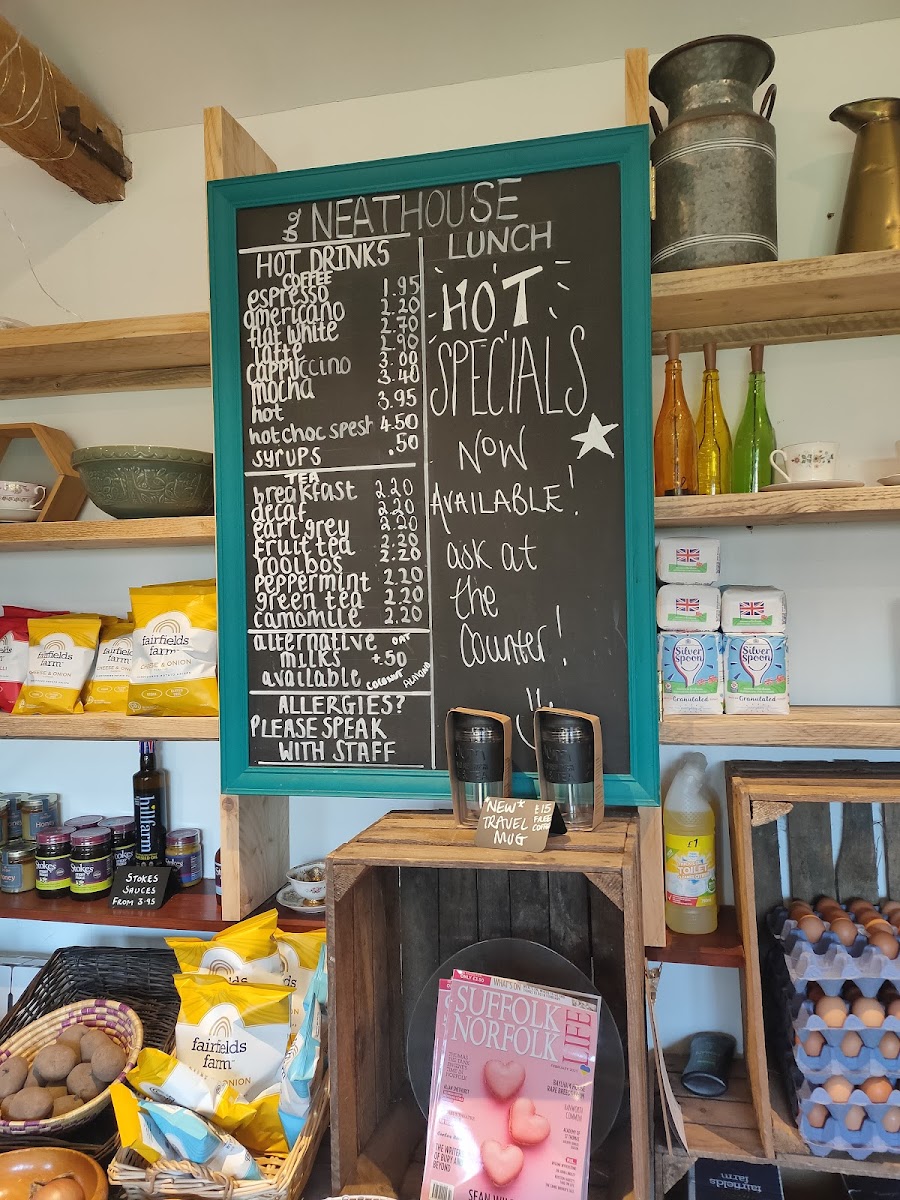 the NEATHOUSE
HOT DRINKS
COFFEE
espresso 1.95
americano 2.20
flat white 2.70
latte 2.90
cappuccino 3.00
mocha 3.40
hot 3.95
hot choc spesh 4.50
syrups .50
TEA
breakfast 2.20
decaf 2.20
earl grey 2.20
fruit tea 2.20
rooibos 2.20
peppermint 2.20
green tea 2.20
camomile 2.20
alternative OAT
milks +.50
available COCONUT ALMOND
ALLERGIES?
PLEASE SPEAK
WITH STAFF
LUNCH
HOT
SPECIALS
NOW
AVAILABLE!
ask at
the
counter!
NEW*
TRAVEL
MUG
£15
FREE
COFFEE
fairfields
farm
CHEESE & ONION
fairfields
farm
CHEESE & ONION
Silver
Spoon
Granulated
Silver
Spoon
Granulated
hillfarm
Stokes
Stokes
STOKES
SAUCES
FROM 3.95
£1
TOILET
fairfields
farm
ONION
ONLY £3.50
WHAT'S ON
SUFFOLK
NORFOLK
LIFE
THE WRITER
OF RUBY AND
BEYOND
SEAN
fairfields
farm